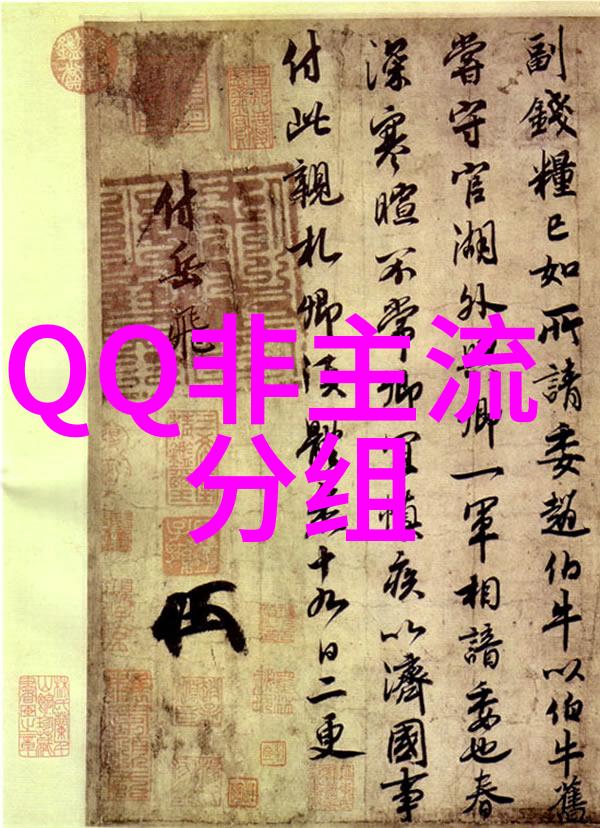 QQ非主流
分组
副錢糧已如所請委趙伯牛以伯牛舊
嘗守官湖外與卿一軍相諳委也春
深寒暄不常卿宜慎疾以濟國事
付此親札卿須體悉十九日二更
付岳飛